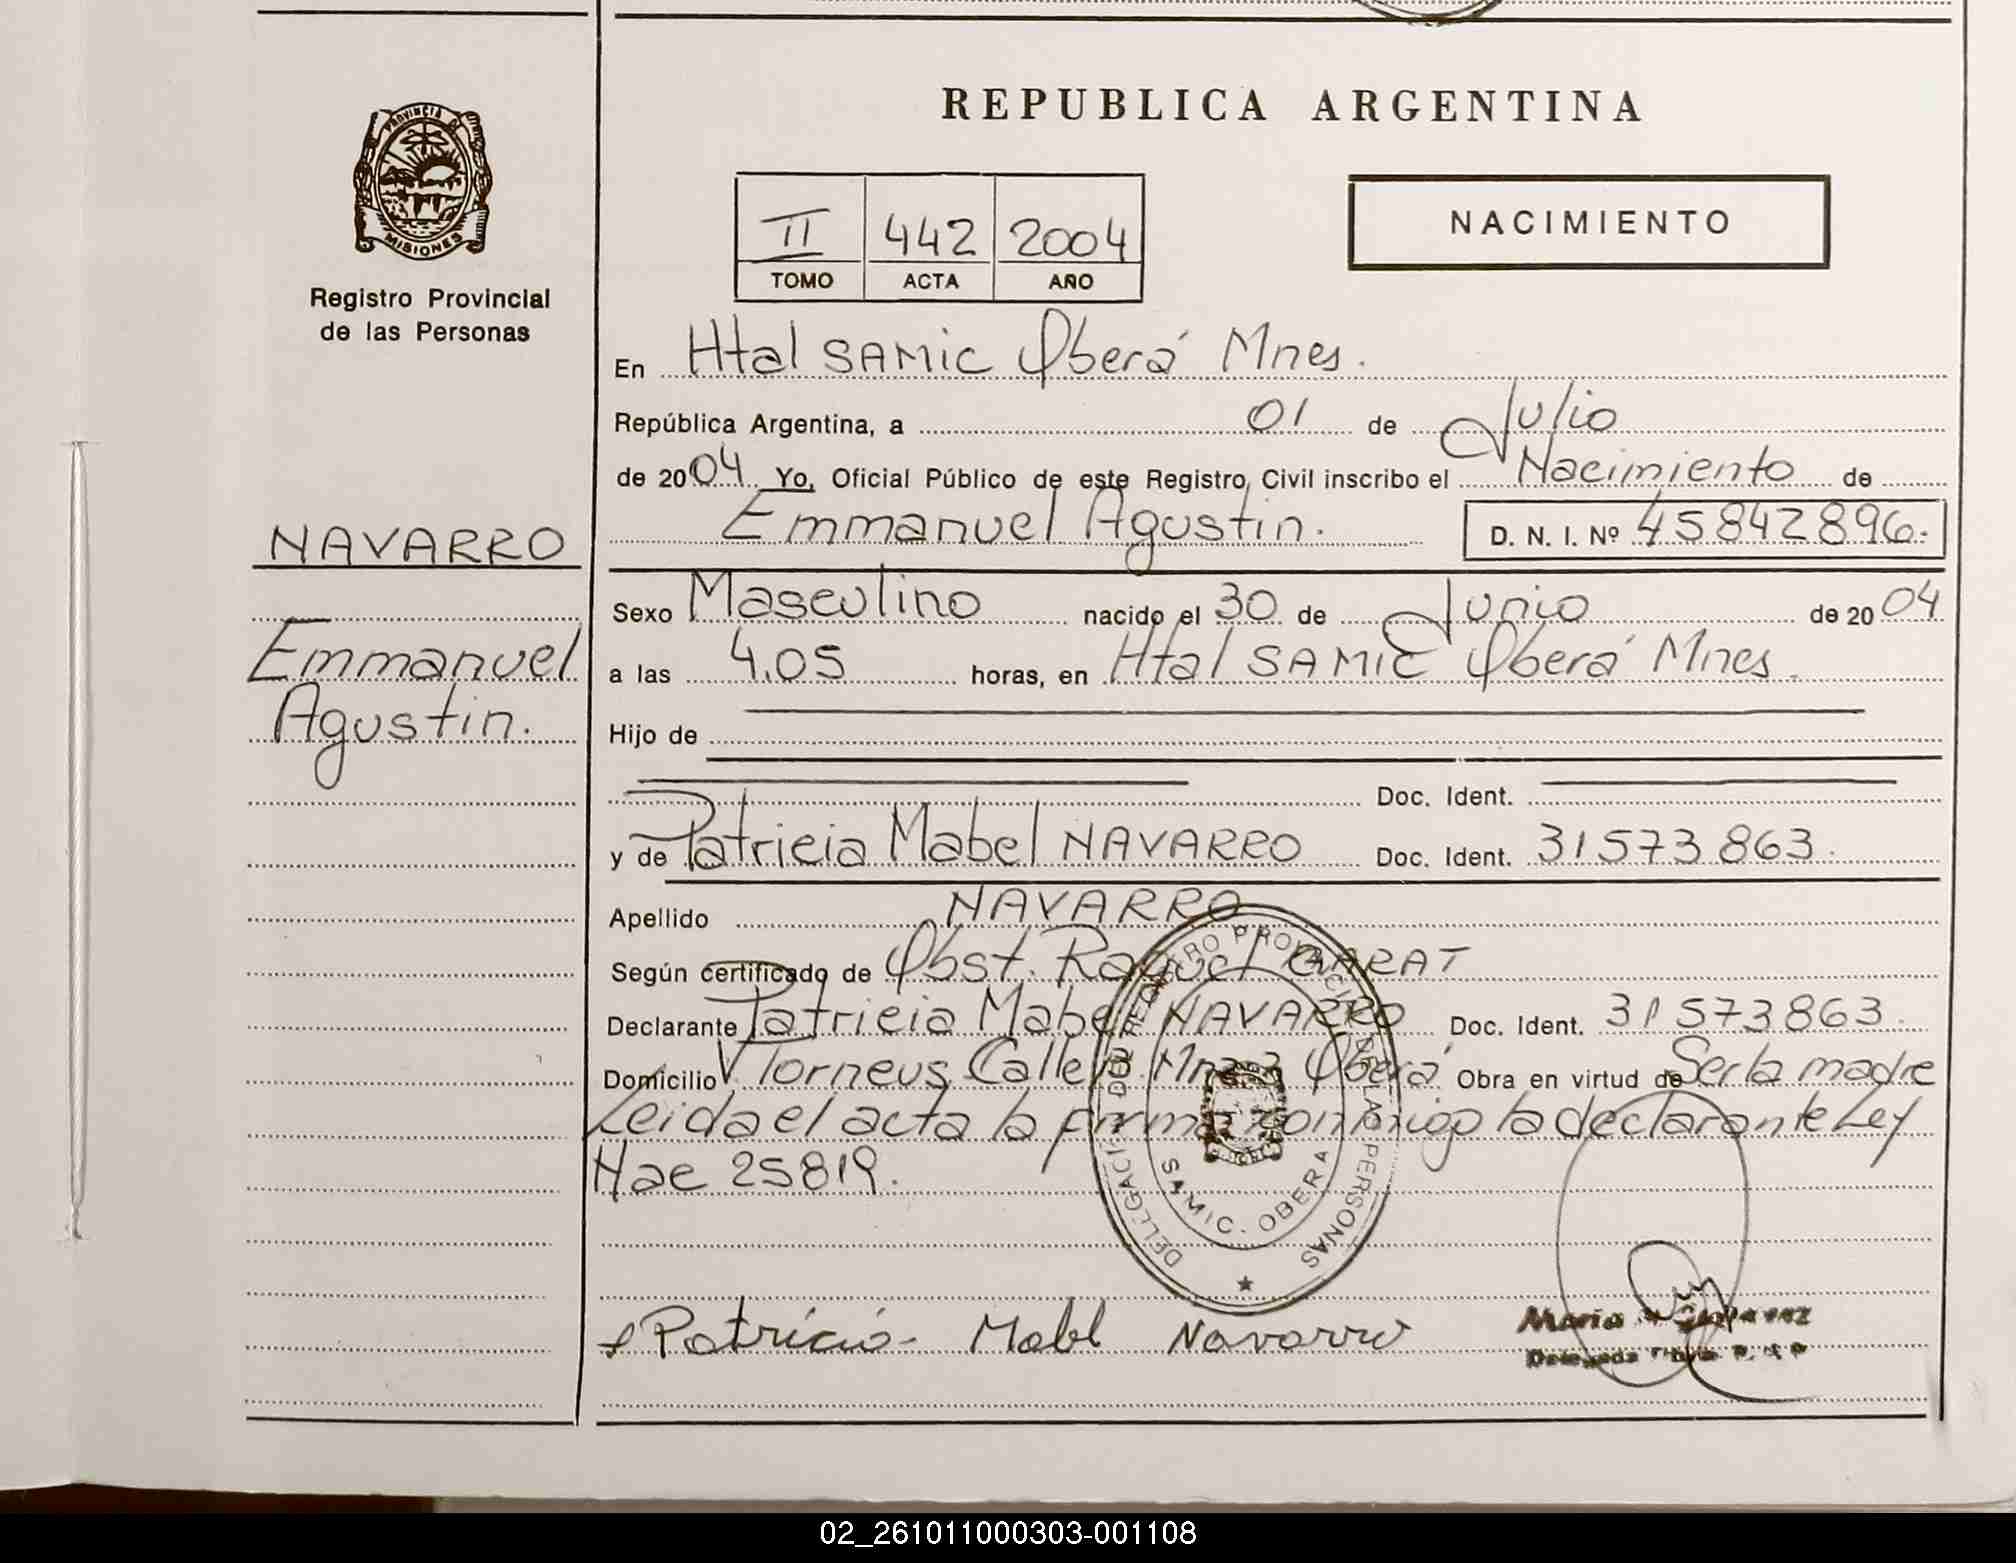 REPUBLICA ARGENTINA
PROVINCIA DE MISIONES
Registro Provincial
de las Personas
II 442 2004
TOMO ACTA AÑO
NACIMIENTO
En Htal SAMIC Oberá Mnes.
República Argentina, a 01 de Julio
de 2004 Yo, Oficial Público de este Registro Civil inscribo el Nacimiento de
Emmanuel Agustin. D. N. I. Nº 45842896.
NAVARRO
Emmanuel
Agustin.
Sexo Masculino nacido el 30 de Junio de 2004
a las 4.05 horas, en Htal SAMIC Oberá Mnes.
Hijo de
Doc. Ident.
y de Patricia Mabel NAVARRO Doc. Ident. 31573863.
Apellido NAVARRO
Según certificado de Obst. Raquel
Declarante Patricia Mabel NAVARRO Doc. Ident. 31573863.
Domicilio V. Torneus Calle Oberá Obra en virtud de Ser la madre
Leida el acta la firma conmigo la declarante Ley
Nac 25819.
DELEGACION DEL REGISTRO PROVINCIAL DE LAS PERSONAS
SAMIC. OBERA
Patricia Mabl Navarro
Maria
02_261011000303-001108